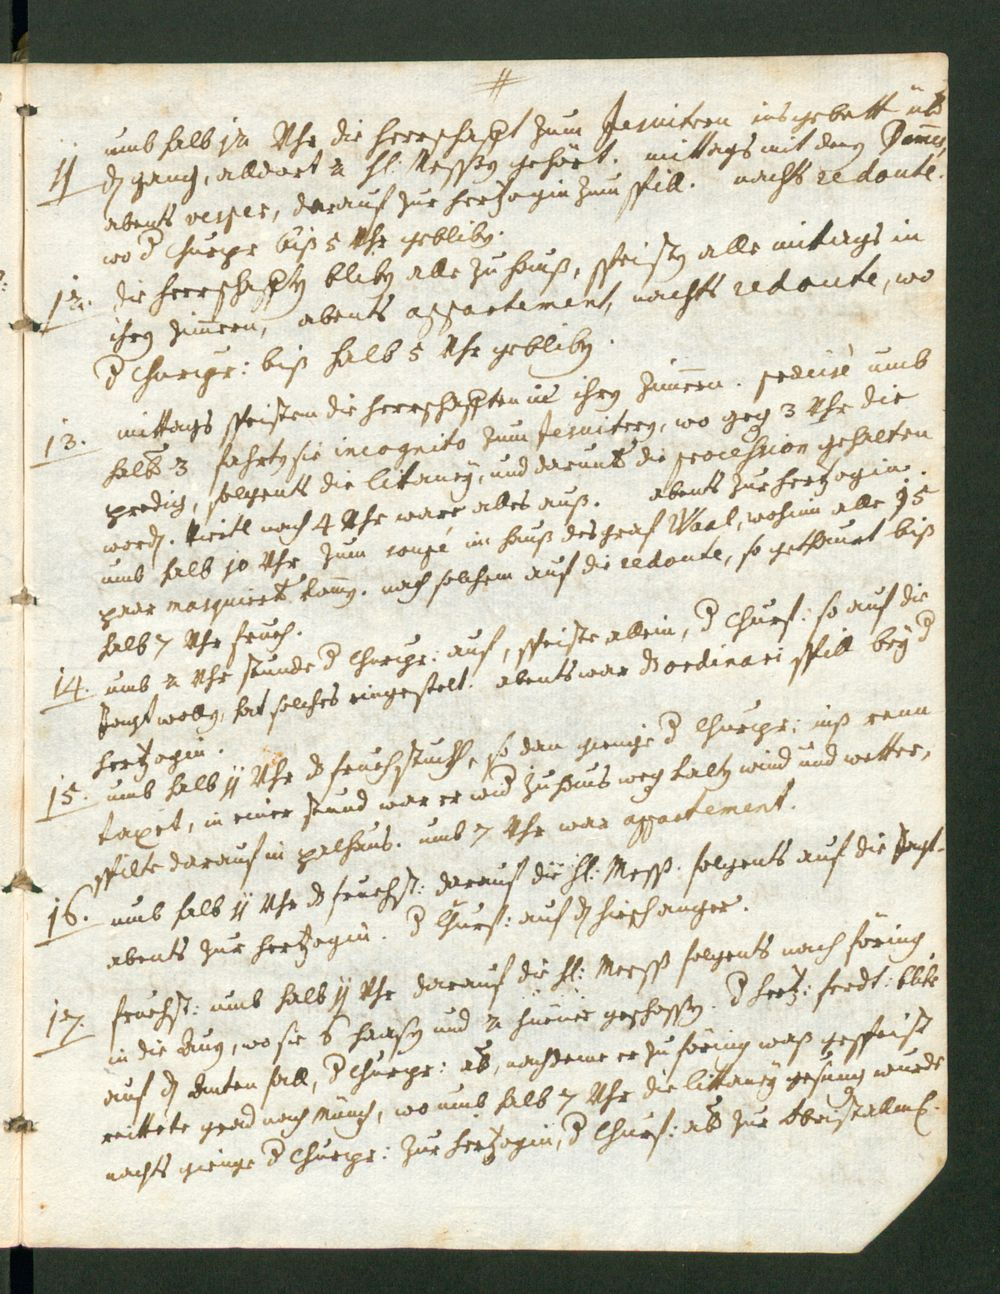 #
umb halb 12 Uhr die herrschafft zum Jesuitern ins gebett üb
11 dz gang, alldort 2 hl. Messen gehört. mittags mit deng Dames,
abents vesper, darauf zur hertzogin zum spill. nachts redoute.
wo d Churpr biß 5 Uhr gebliben.
12. die herrschafften bliben alle zu hauß, speisten alle mitags in
ihren zimern, abents appartement, nachts redoute, wo
d Churpr: biß halb 5 Uhr gebliben.
13. mittags speisten die herrschafften in ihren zimern. precise umb
halb 3 fahrten sie incognito zum Jesuitern, wo geg 3 Uhr die
predig, folgents die litaneÿ, und darunt die procession gehalten
worden. Viertl nach 4 Uhr ware alles auß. abents zur hertzogin.
umb halb 10 Uhr zum soupé im hauß des graf Waal, wohinn alle 15
paar masquiert komen. nach solchem auf die redoute, so gethauert biß
halb 7 Uhr frueh.
14. umb 2 Uhr stunde d Churpr: auf, speiste allein, d Churf: so auf die
Jagt wollen, hat solches eingestelt. abents war ds ordinari spill beÿ d
hertzogin.
15. umb halb 11 Uhr ds fruehstuckh, so dan gienge d Churpr: inß renn
taxet, in einer stund war er wid zu haus weg kaltz wind und wetter,
spilte darauf in palhaus. umb 7 Uhr war appartement.
16. umb halb 11 Uhr ds fruehst: darauf die hl: Mess. folgents auf die Jagt.
abents zur hertzogin. d Churf: auf dz hirschanger.
17. fruehst: umb halb 11 Uhr darauf die hl: Mess folgents nach föring
in die Aug, wo sie 6 haasen und 2 hüener geschossen. d hertz: ferdt: blibe
auf dz Anten fall, d Churpr: ab, nachdeme er zu föring waß gespeist
reittete grad nach Münch, wo umb halb 7 Uhr die littaneÿ gesung wurde
nachts gienge d Churpr: zur hertzogin, d Churf: ab zur